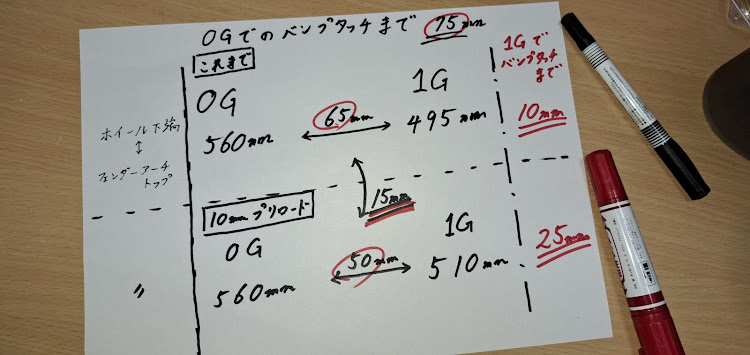 0Gでのバンプタッチまで 75mm
これまで
0G
1G
1Gで
バンプタッチ
まで
ホイール下端
↕
フェンダーアーチ
トップ
560mm
65mm
495mm
10mm
15mm
10mmプリロード
0G
1G
〃
560mm
50mm
510mm
25mm